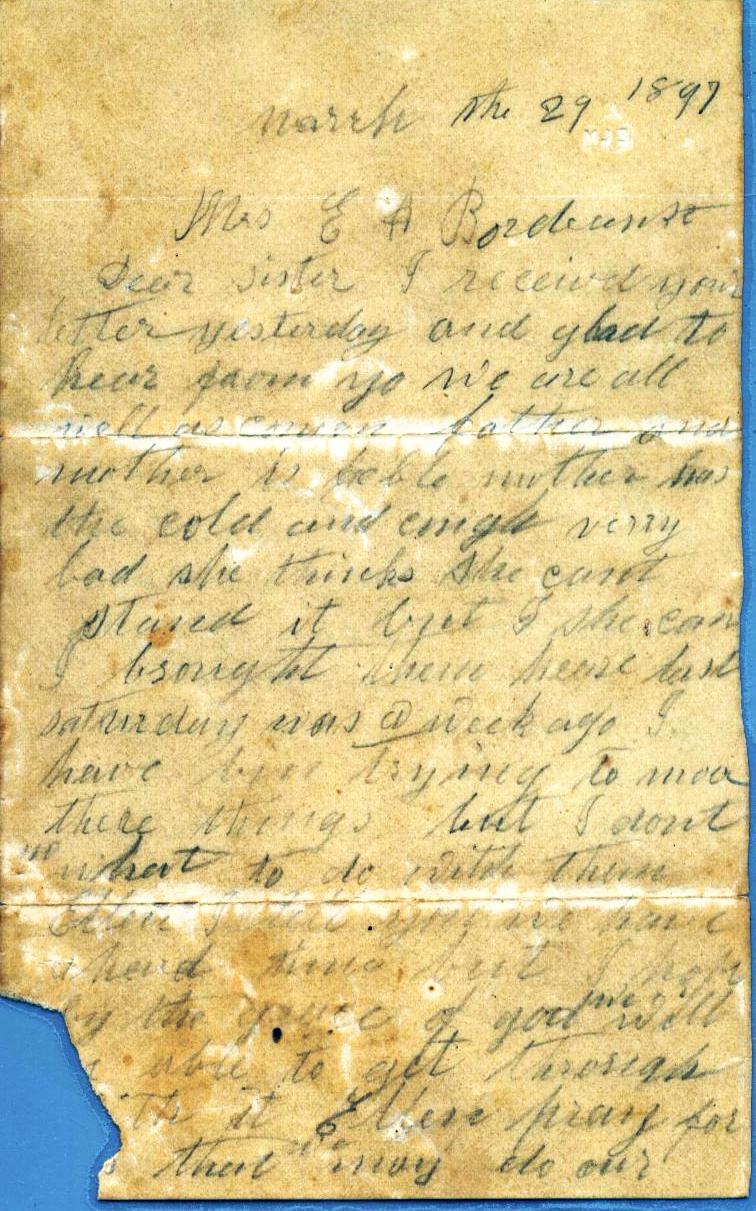 March the 29 1897
Mrs E A
Dear sister I received your
letter yesterday and glad to
hear from yo we are all
well as father and
mother is feble mother has
the cold and cough verry
bad she thinks she cant
stand it but I she can
I brought them heare last
saturday was a week ago I
have bin trying to mov
there things but I dont
what to do with them
Ellen I tell you we have
a hard time but I hope
by the grace of god we will
able to get through
it Ellen pray for
that we may do our